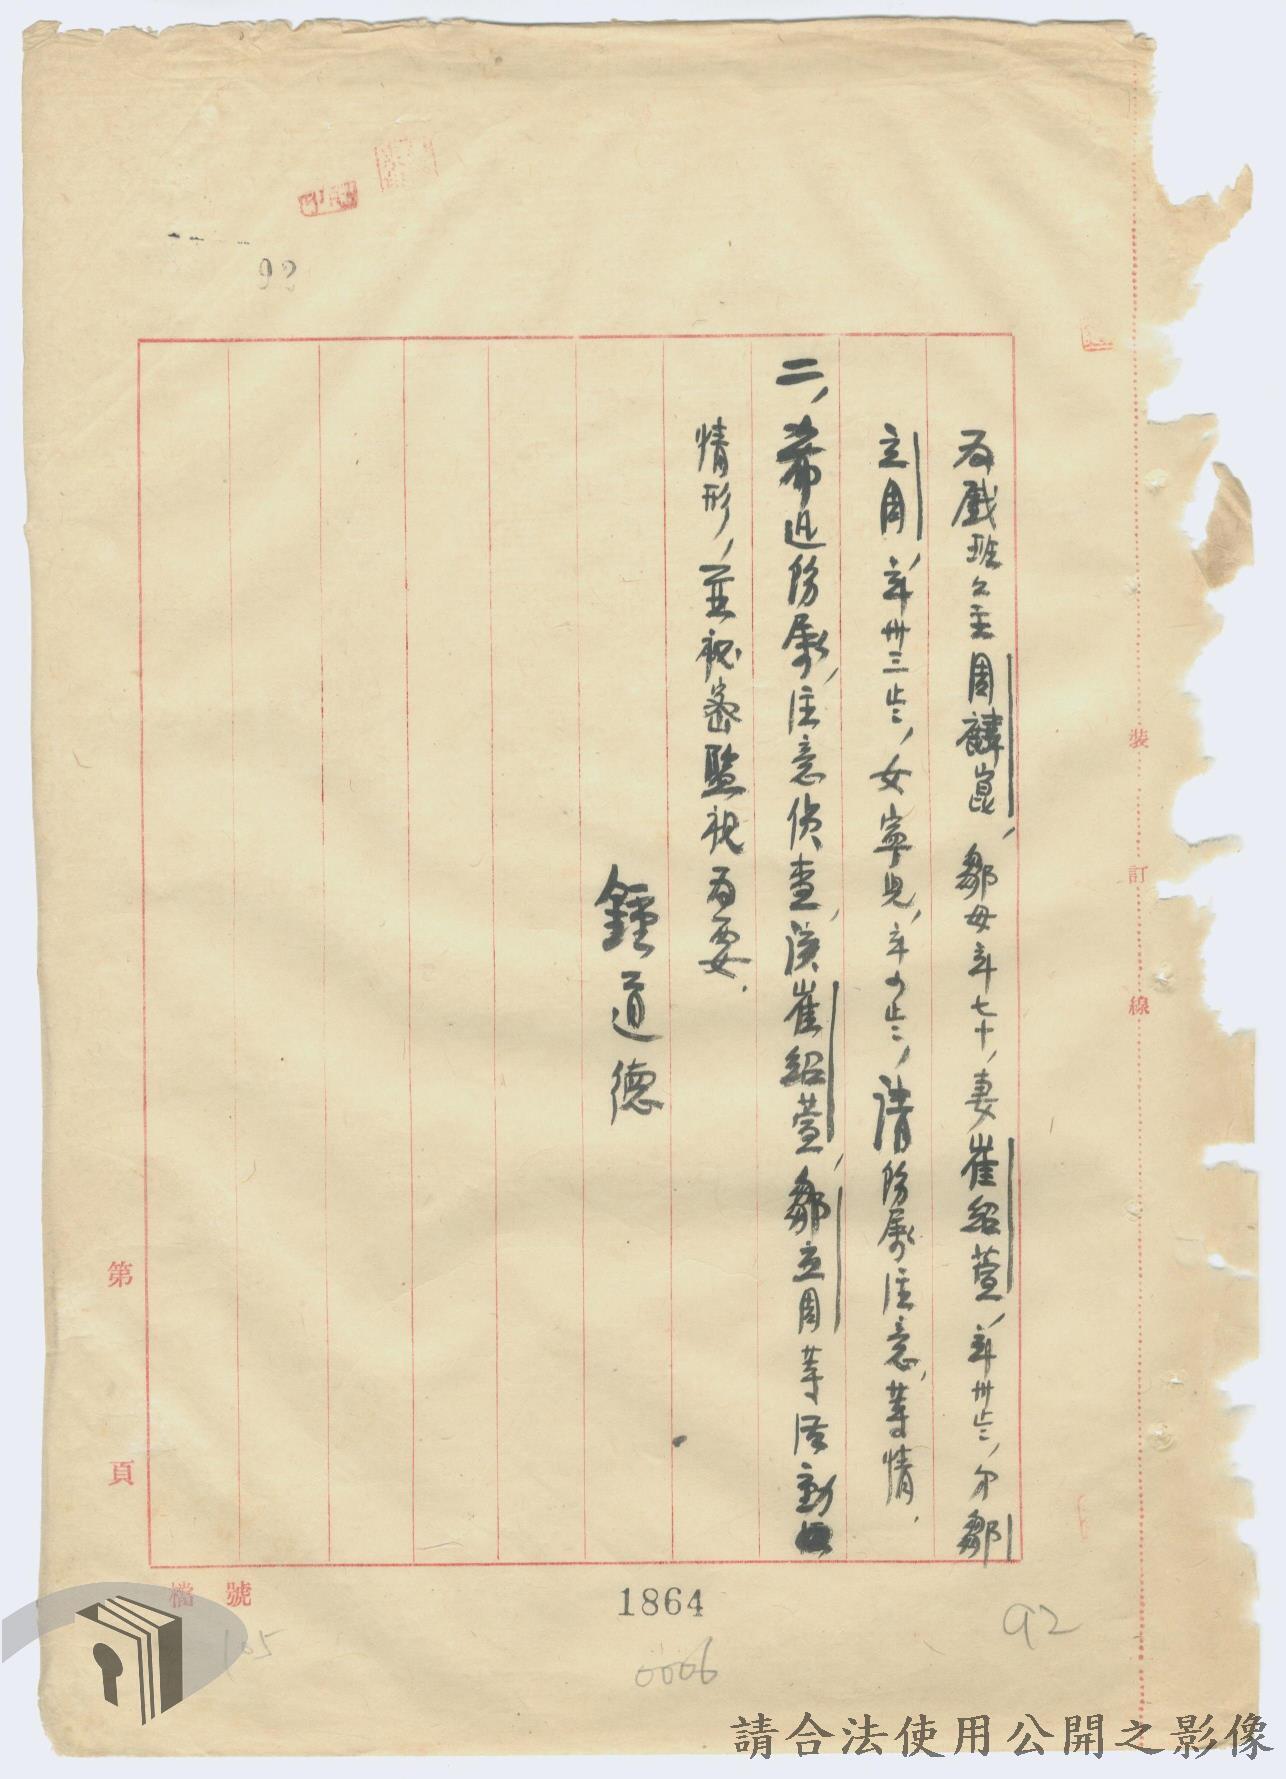 92
為戲班公主周麟崑，鄒母年七十，妻崔紹萱，年卅歲，介鄒
立周，年卅三歲，女寧兒，年四歲，請防屬注意，等情．
二，希迅飭屬，注意偵查，漢崔紹萱，鄒立周等活動
情形，並秘密監視為要．
鍾道德
裝訂線
第頁
檔號
105
1864
0006
92
請合法使用公開之影像